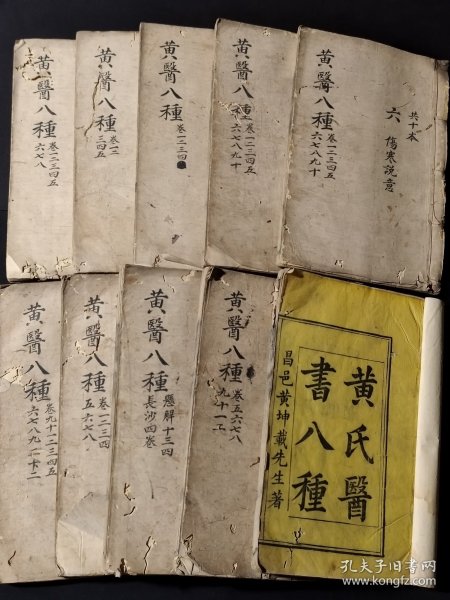 黄醫八種
卷一二三四五
六七八
黄醫八種
卷一二
三四五
黄醫八種
卷一二三四
黄醫八種
卷一二三四五
六七八九十
黄醫八種
卷一二三四五
六七八九十
共十本
六 傷寒説意
黄醫八種
卷九十一二三四五
六七八九
黄醫八種
卷一二三四
五六七八
黄醫八種
懸解十三四
長沙四卷
黄醫八種
卷五六七八
九十一
黄氏醫
書八種
昌邑黄坤載先生著
孔夫子旧书网
www.kongfz.com